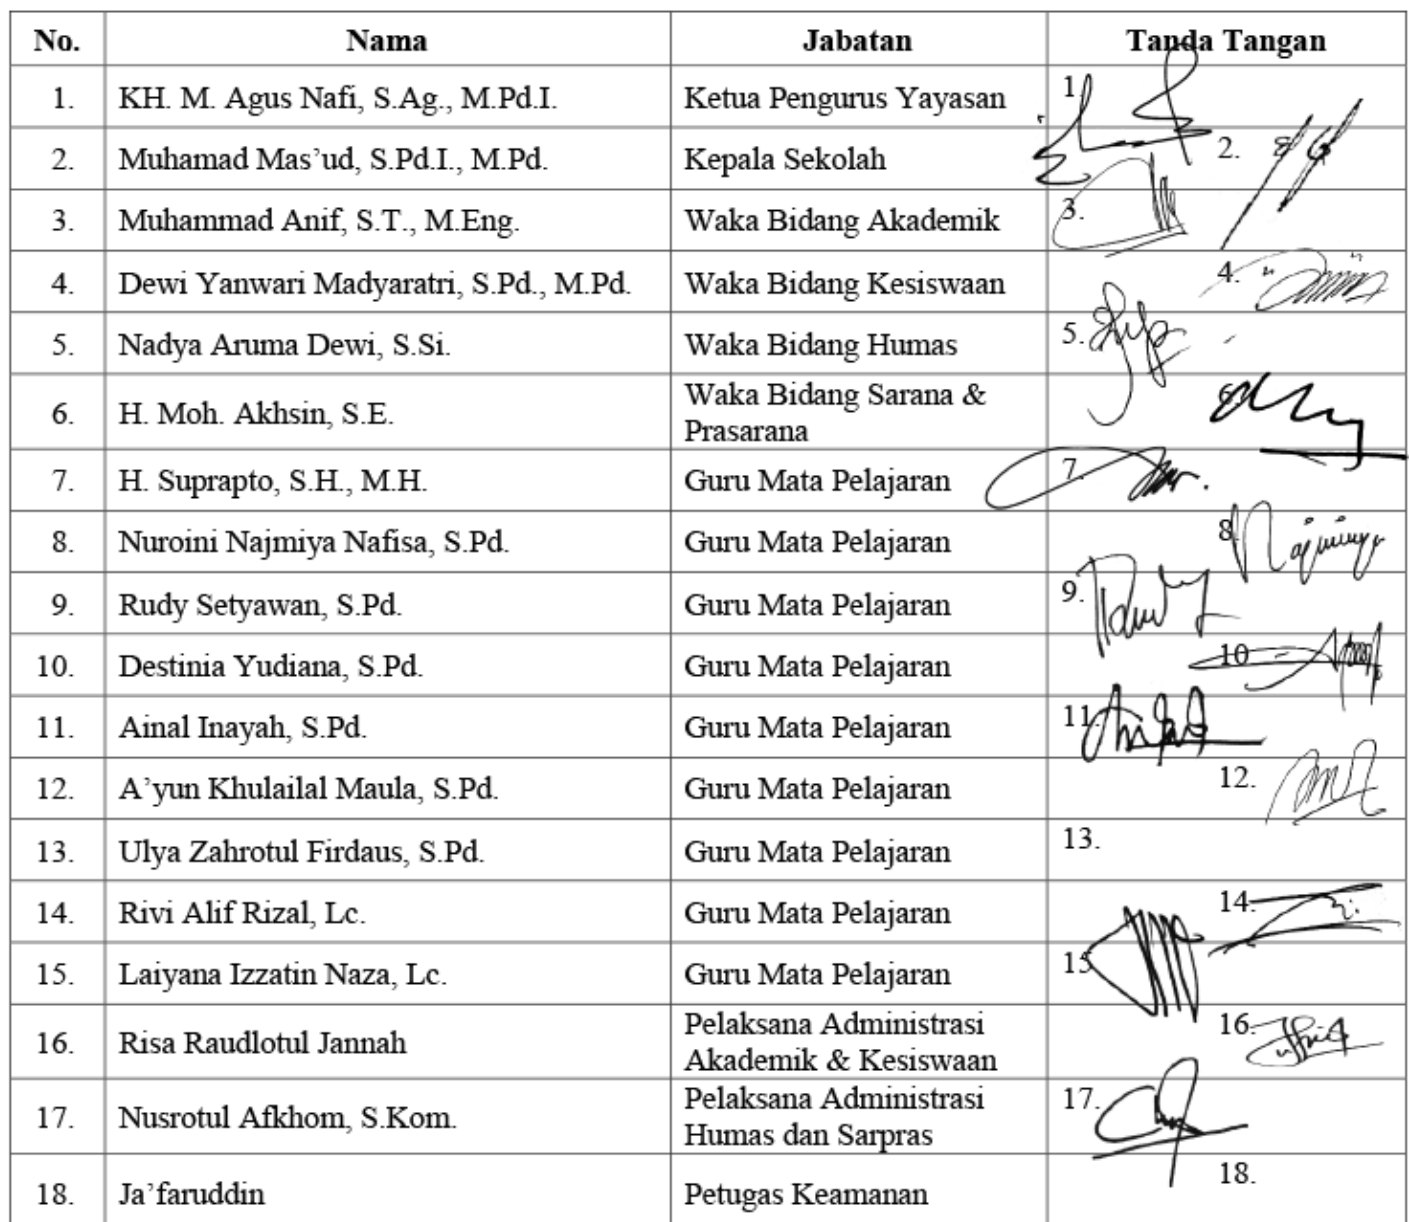 No. Nama Jabatan Tanda Tangan
1. KH. M. Agus Nafi, S.Ag., M.Pd.I. Ketua Pengurus Yayasan 1.
2. Muhamad Mas’ud, S.Pd.I., M.Pd. Kepala Sekolah 2.
3. Muhammad Anif, S.T., M.Eng. Waka Bidang Akademik 3.
4. Dewi Yanwari Madyaratri, S.Pd., M.Pd. Waka Bidang Kesiswaan 4.
5. Nadya Aruma Dewi, S.Si. Waka Bidang Humas 5.
6. H. Moh. Akhsin, S.E. Waka Bidang Sarana & 6.
Prasarana
7. H. Suprapto, S.H., M.H. Guru Mata Pelajaran 7.
8. Nuroini Najmiya Nafisa, S.Pd. Guru Mata Pelajaran 8.
9. Rudy Setyawan, S.Pd. Guru Mata Pelajaran 9.
10. Destinia Yudiana, S.Pd. Guru Mata Pelajaran 10
11. Ainal Inayah, S.Pd. Guru Mata Pelajaran 11.
12. A’yun Khulailal Maula, S.Pd. Guru Mata Pelajaran 12.
13. Ulya Zahrotul Firdaus, S.Pd. Guru Mata Pelajaran 13.
14. Rivi Alif Rizal, Lc. Guru Mata Pelajaran 14.
15. Laiyana Izzatin Naza, Lc. Guru Mata Pelajaran 15
16. Risa Raudlotul Jannah Pelaksana Administrasi 16.
Akademik & Kesiswaan
17. Nusrotul Afkhom, S.Kom. Pelaksana Administrasi 17.
Humas dan Sarpras
18. Ja’faruddin Petugas Keamanan 18.